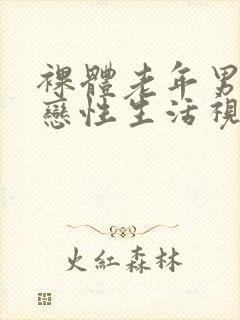 裸體老年男
戀性生活視
火紅森林